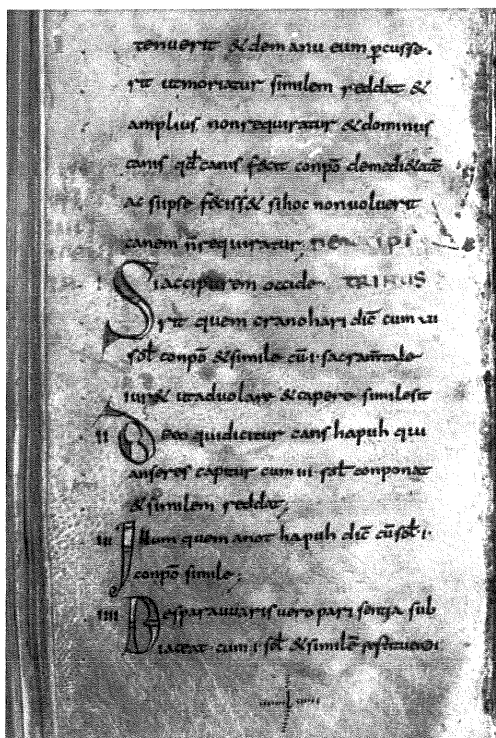 tenuerit & demanu eum pcusse.
rit utmoriatur similem reddat &
amplius nonrequiratur & dominus
canis qd canis fecit conpō demedi&atē
ac siipse feciss& sihoc nonvoluerit
canem n̄requiratur DE ACIPI
I Siaccipitrem occide TRIBUS
rit quem cranohari dic̄ cum VI
sol conpō & simile cū I sacram̄tale
iur& utaduolare & capere similesit
II Deeo quidicitur canshapuh qui
anseres capitur cum III sol conponat
& similem reddat;
III Illum quem anothapuh dic̄ cū sol I
conpō simile;
IIII Desparauuaris uero pari sentētia sub
iaceat cum I sol & similē restituendi